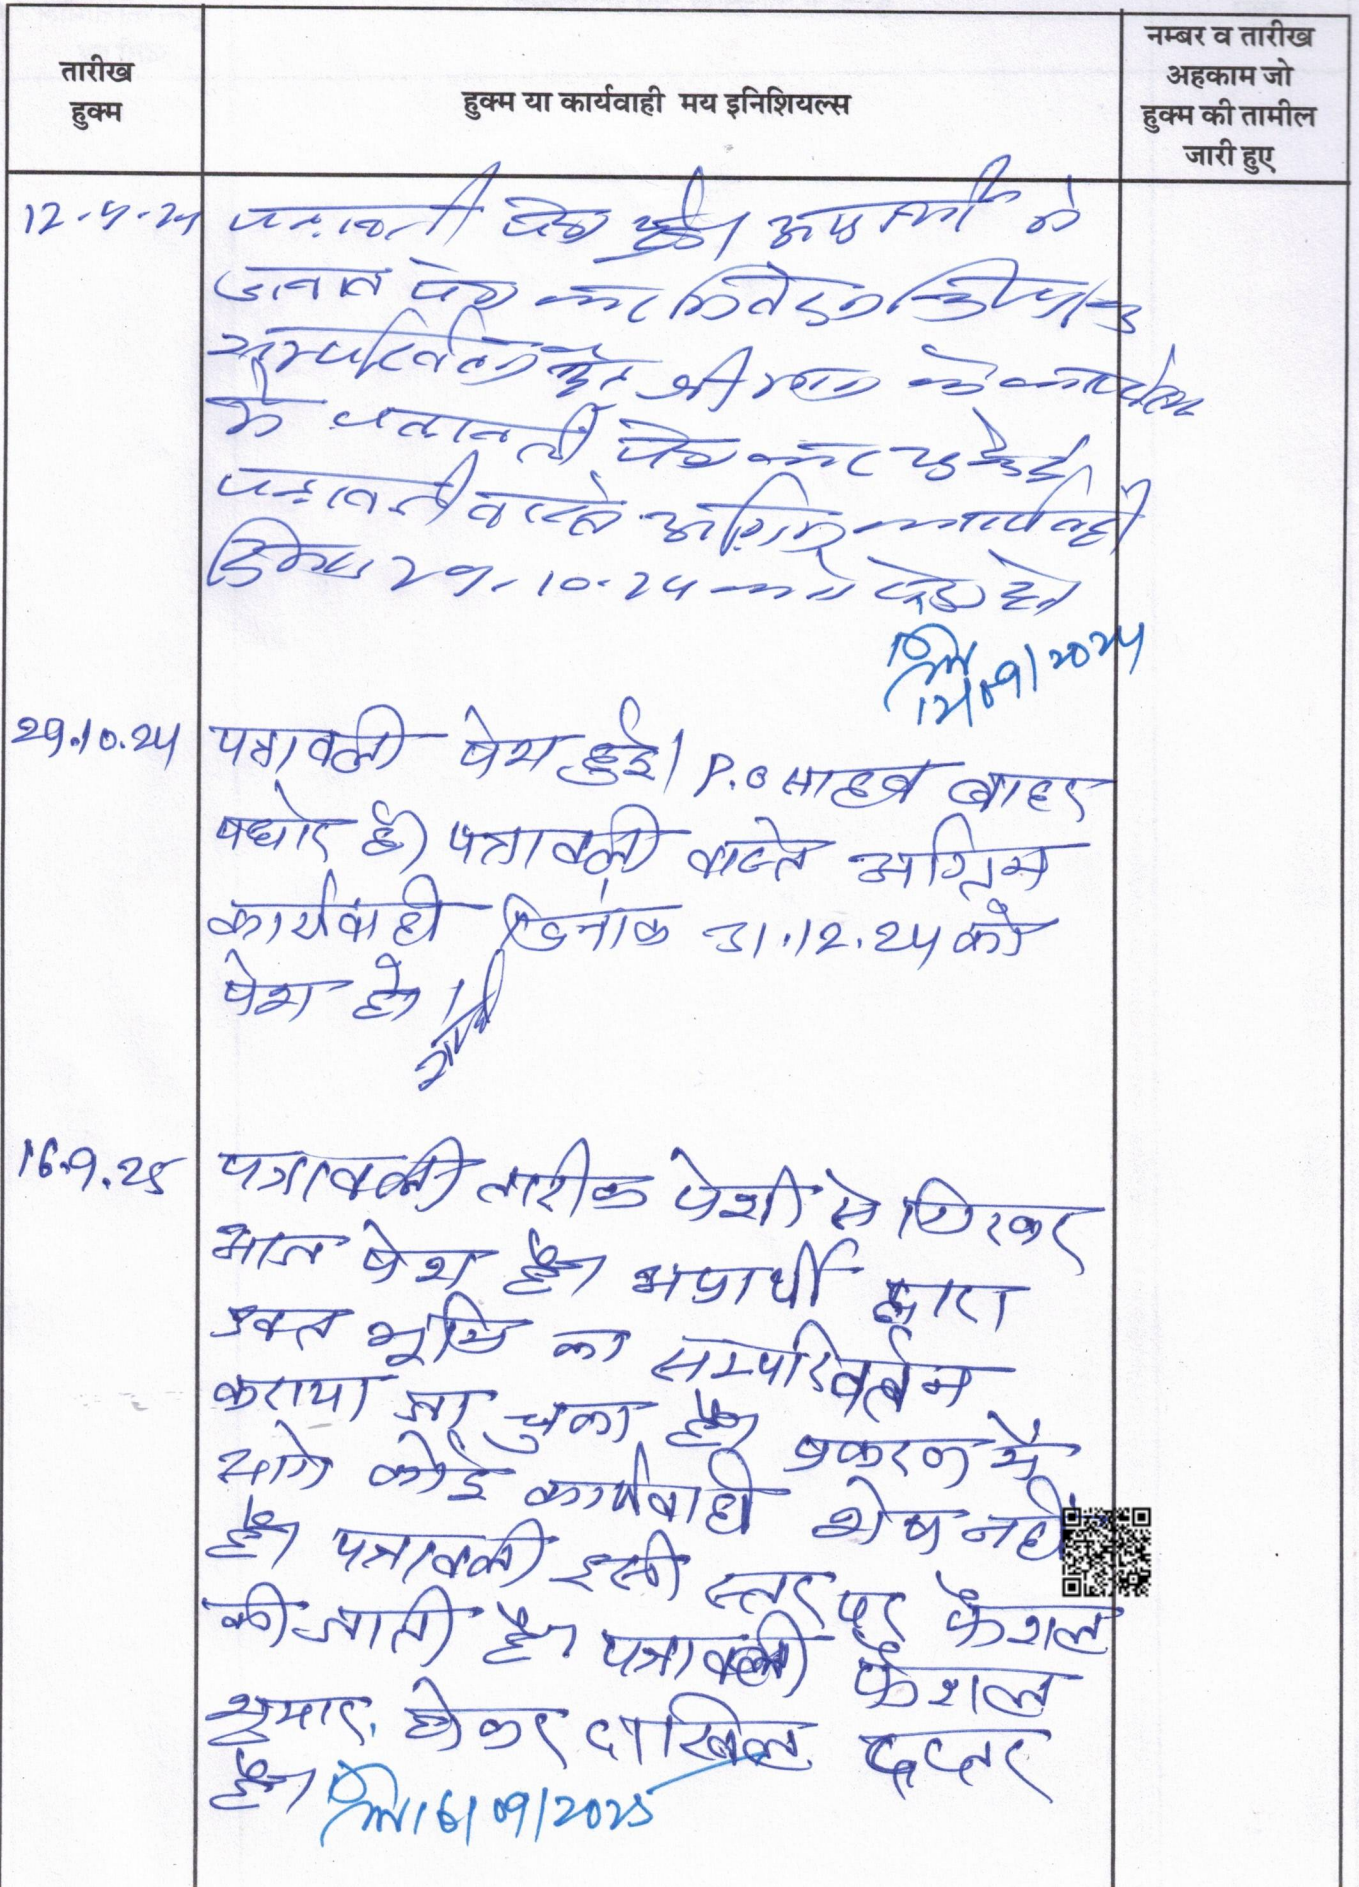 तारीख
हुक्म
हुक्म या कार्यवाही मय इनिशियल्स
नम्बर व तारीख
अहकाम जो
हुक्म की तामील
जारी हुए
पत्रावली पेश हुई। अप्रार्थी ने
जवाब पेश कर निवेदन किया
सम्परिवर्तन हेतु श्रीमान के कार्यालय
में पत्रावली पेश कर
पत्रावली वास्ते अग्रिम कार्यवाही
दिनांक 29-10-24 को पेश हो।
12/09/2024
29.10.24
पत्रावली पेश हुई। P.O साहब बाहर
पधारे है। पत्रावली वास्ते अग्रिम
कार्यवाही दिनांक 31.12.24 को
पेश हो।
16.9.25
पत्रावली तारीक पेशी से
आज पेश है। अप्रार्थी द्वारा
उक्त भूमि का सम्परिवर्तन
कराया जा चुका है। प्रकरण मे
आगे कोई कार्यवाही शेष नही
है। पत्रावली इसी स्तर पर फैशल
की जाती है। पत्रावली फैशल
शुमार होकर दाखिल दफ्तर
हो।
16/09/2025